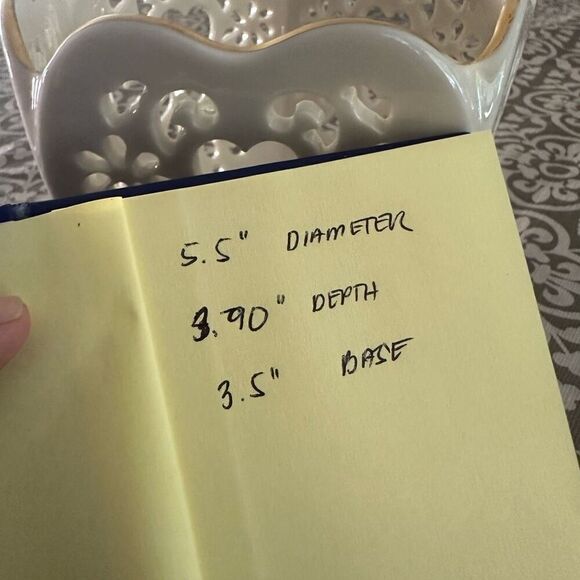 5.5" DIAMETER
3.90" DEPTH
3.5" BASE